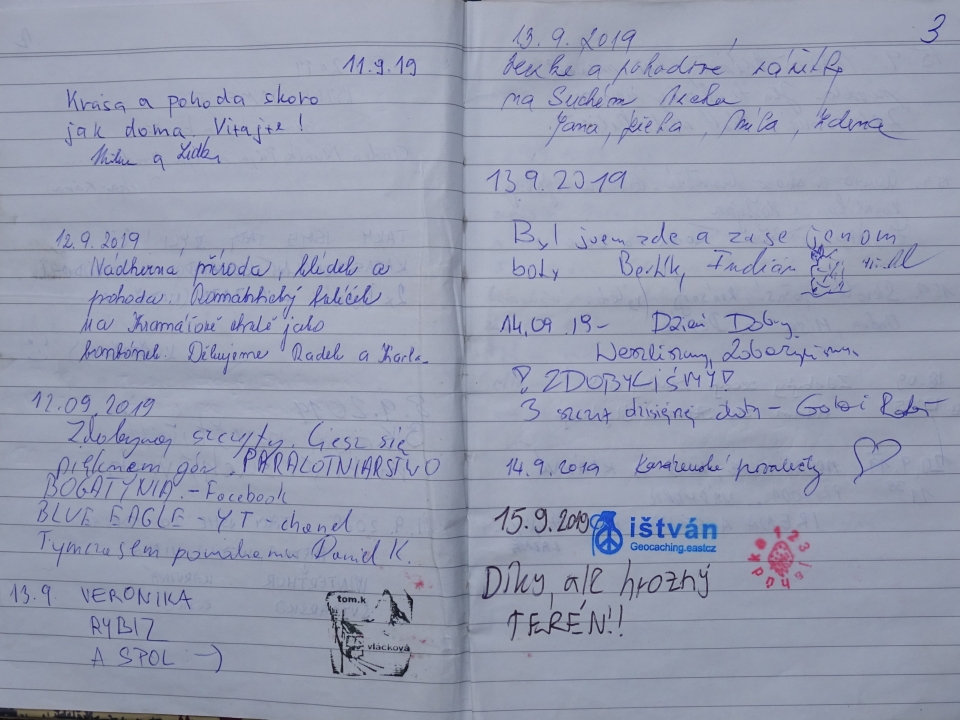 11.9.19
Krása a pohoda skoro
jak doma. Vitajte!
a Lidka
12.9.2019
Nádherná příroda, klídek a
pohoda. Romantický
na Kramářově chatě jako
bonbónek. Děkujeme Radek a Karla
12.09.2019
Zdobywaj szczyty. Ciesz się
pięknem gór. PARALOTNIARSTWO
BOGATYNIA - Facebook
BLUE EAGLE - YT - chanel
Tymczasem pomāhamu Daniel K.
13.9. VERONIKA
RYBIZ
A SPOL :-)
tom.k
vláčková
3
13.9.2019
a pohodové zážitky
na Suchém
Jana, Mila, Zdena
13.9.2019
Byl jsem zde a zase jenom
boty Indián
14.09.19- Dzień Dobry
Weszliśmy, Zobaczyliśmy
! ZDOBYLIŚMY!
3 szczyt dzisiejszej
14.9.2019
15.9.2019
ištván
Geocaching.eastcz
123
Díky, ale hrozný
TERÉN!!